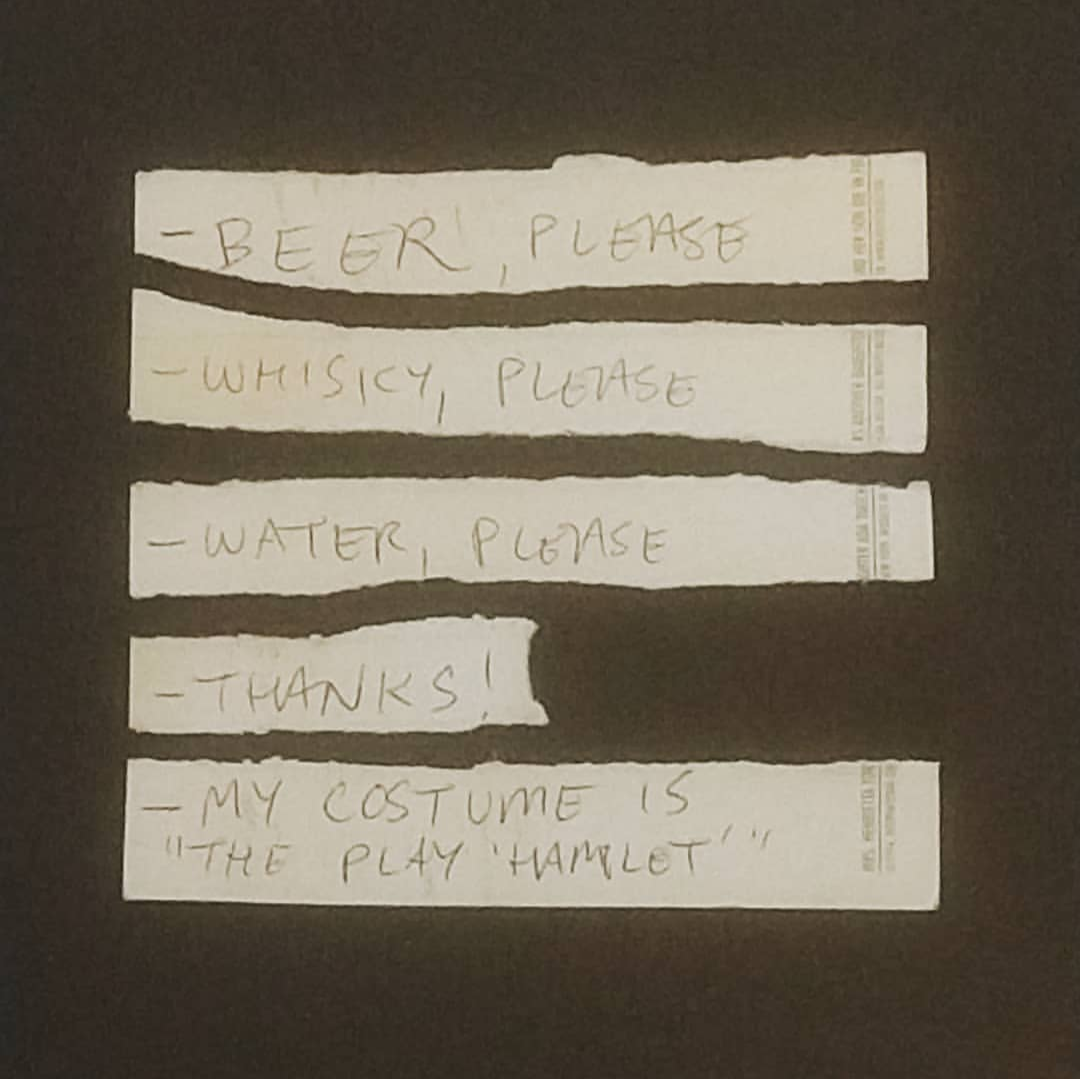 - BEER, PLEASE
- WHISKY, PLEASE
- WATER, PLEASE
- THANKS!
- MY COSTUME IS
"THE PLAY 'HAMLET'"